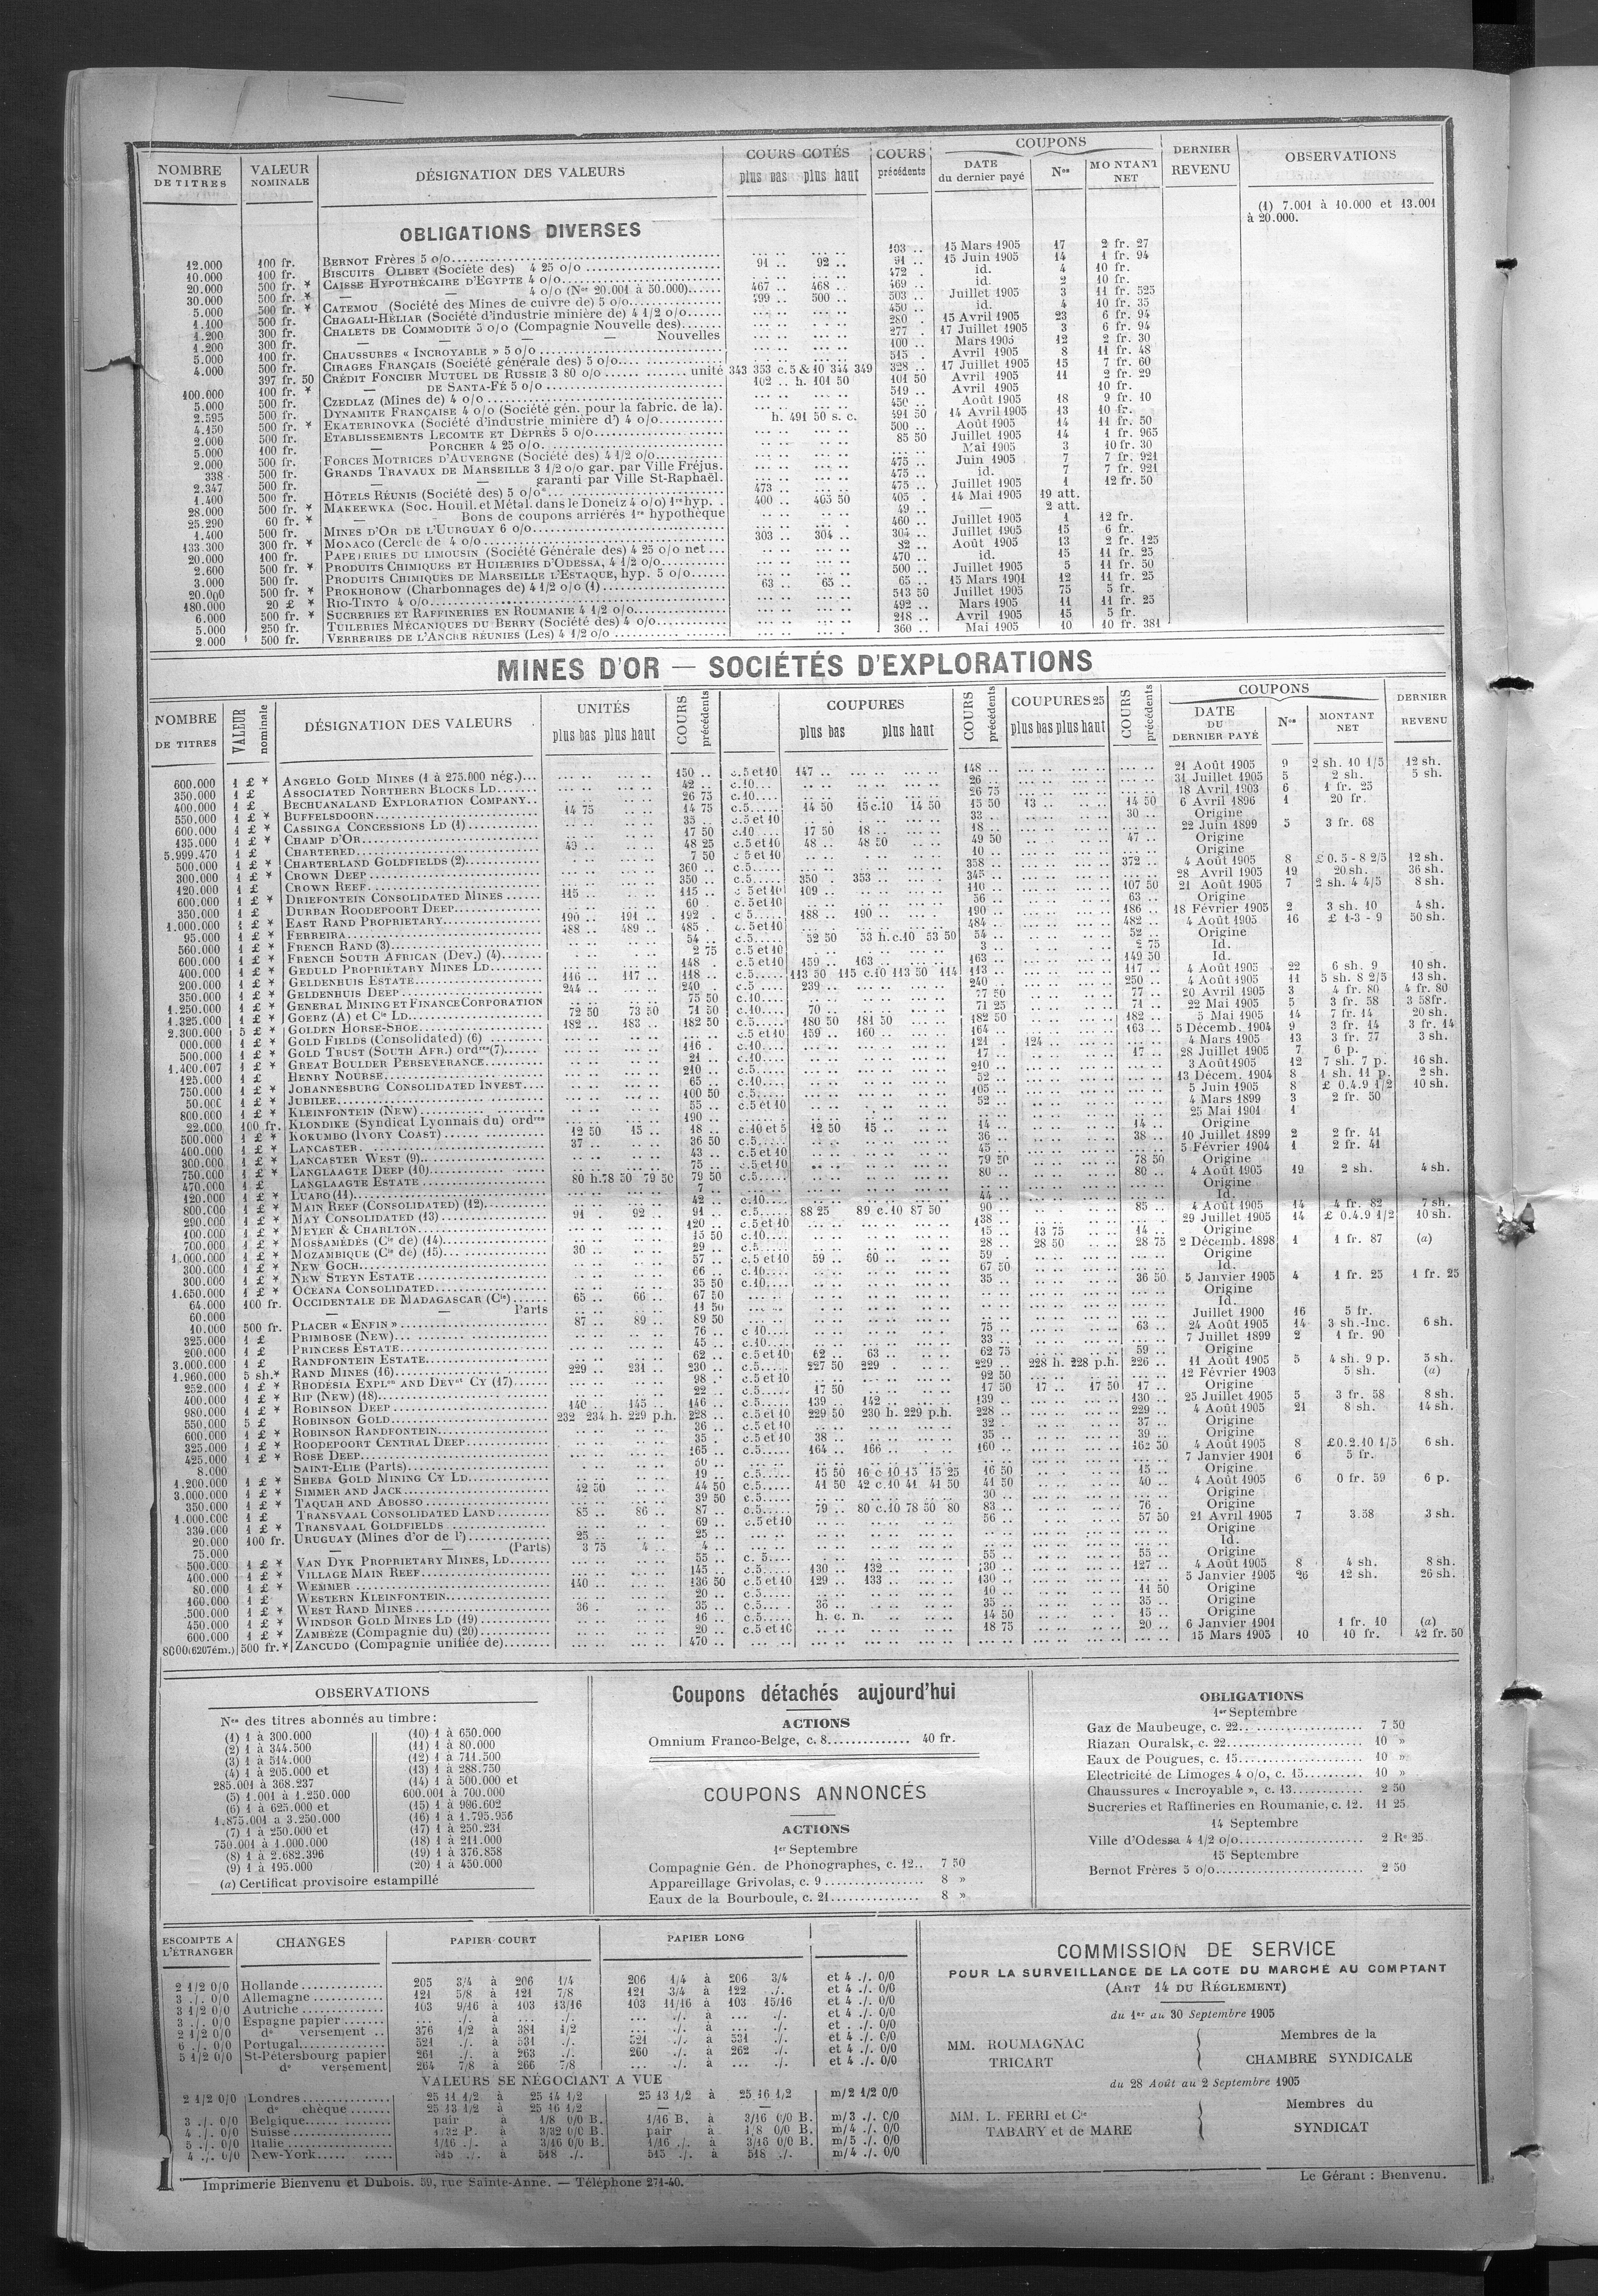 NOMBRE DE TITRES | VALEUR NOMINALE | DÉSIGNATION DES VALEURS | COURS COTÉS plus bas plus haut | COURS précédents | COUPONS DATE du dernier payé | Nos | MONTANT NET | DERNIER REVENU | OBSERVATIONS
(1) 7.001 à 10.000 et 13.001
à 20.000.
OBLIGATIONS DIVERSES
12.000 100 fr. BERNOT Frères 5 o/o 103 .. 15 Mars 1905 17 2 fr. 27
10.000 100 fr. BISCUITS OLIBET (Société des) 4 25 o/o 91 .. 92 .. 91 .. 15 Juin 1905 14 1 fr. 94
20.000 500 fr. * CAISSE HYPOTHÉCAIRE D'EGYPTE 4 o/o 472 . id. 4 10 fr.
30.000 500 fr. * — 4 o/o (Nos 20.001 à 50.000) 467 .. 468 .. 469 .. id. 2 10 fr.
5.000 500 fr. * CATEMOU (Société des Mines de cuivre de) 5 o/o 499 .. 500 .. 503 .. Juillet 1905 3 11 fr. 525
1.100 500 fr. CHAGALI-HÉLIAR (Société d'industrie minière de) 4 1/2 o/o 450 .. id. 4 10 fr. 35
1.200 300 fr. CHALETS DE COMMODITÉ 5 o/o (Compagnie Nouvelle des) 280 . 15 Avril 1905 23 6 fr. 94
1.200 300 fr. — — — — Nouvelles 277 . 17 Juillet 1905 3 6 fr. 94
5.000 100 fr. CHAUSSURES « INCROYABLE » 5 o/o 100 .. Mars 1905 12 2 fr. 30
4.000 500 fr. CIRAGES FRANÇAIS (Société générale des) 5 o/o 515 . Avril 1905 8 11 fr. 48
397 fr. 50 CRÉDIT FONCIER MUTUEL DE RUSSIE 3 80 o/o unité 343 353 c. 5 & 10 344 349 328 .. 17 Juillet 1905 15 7 fr. 60
100.000 100 fr. * — DE SANTA-FÉ 5 o/o 102 .. h. 101 50 101 50 Avril 1905 11 2 fr. 29
5.000 500 fr. CZEDLAZ (Mines de) 4 o/o 519 .. Avril 1905 10 fr.
2.595 500 fr. DYNAMITE FRANÇAISE 4 o/o (Société gén. pour la fabric. de la). 450 .. Août 1905 18 9 fr. 10
4.150 500 fr. * EKATERINOVKA (Société d'industrie minière d') 4 o/o h. 491 50 s. c. 491 50 14 Avril 1905 13 10 fr.
2.000 500 fr. ETABLISSEMENTS LECOMTE ET DÉPRÈS 5 o/o 500 .. Août 1905 14 11 fr. 50
5.000 100 fr. — PORCHER 4 25 o/o 85 50 Juillet 1905 14 1 fr. 965
2.000 500 fr. FORCES MOTRICES D'AUVERGNE (Société des) 4 1/2 o/o Mai 1905 3 10 fr. 30
338 500 fr. GRANDS TRAVAUX DE MARSEILLE 3 1/2 o/o gar. par Ville Fréjus. 475 .. Juin 1905 7 7 fr. 921
2.347 500 fr. — — garanti par Ville St-Raphaël. 475 .. id. 7 7 fr. 921
1.400 500 fr. HÔTELS RÉUNIS (Société des) 5 o/o 473 .. 475 .. Juillet 1905 1 12 fr. 50
28.000 500 fr. * MAKEEWKA (Soc. Houil. et Métal. dans le Donetz 4 o/o) 1re hyp. 400 .. 405 50 405 . 14 Mai 1905 19 att.
25.290 60 fr. * — Bons de coupons arriérés 1re hypothèque 49 .. — 2 att.
1.400 500 fr. MINES D'OR DE L'UURGUAY 6 o/o 460 .. Juillet 1905 1 12 fr.
133.300 300 fr. * MONACO (Cercle de 4 o/o 303 .. 304 .. 304 .. Juillet 1905 15 6 fr.
20.000 100 fr. PAPETERIES DU LIMOUSIN (Société Générale des) 4 25 o/o net Août 1905 13 2 fr. 125
2.600 500 fr. * PRODUITS CHIMIQUES ET HUILERIES D'ODESSA, 4 1/2 o/o 470 .. id. 15 11 fr. 25
3.000 500 fr. PRODUITS CHIMIQUES DE MARSEILLE L'ESTAQUE, hyp. 5 o/o 500 .. Juillet 1905 5 11 fr. 50
20.000 500 fr. * PROKHOROW (Charbonnages de) 4 1/2 o/o (1) 63 .. 65 .. 65 .. 15 Mars 1901 12 11 fr. 25
180.000 20 £ * RIO-TINTO 4 o/o 513 50 Juillet 1905 75 5 fr.
6.000 500 fr. * SUCRERIES ET RAFFINERIES EN ROUMANIE 4 1/2 o/o 492 .. Mars 1905 11 11 fr. 25
5.000 250 fr. TUILERIES MÉCANIQUES DU BERRY (Société des) 4 o/o 248 .. Avril 1905 15 5 fr.
2.000 500 fr. VERRERIES DE L'ANCRE RÉUNIES (Les) 4 1/2 o/o 360 .. Mai 1905 10 10 fr. 381
MINES D'OR — SOCIÉTÉS D'EXPLORATIONS
NOMBRE DE TITRES | VALEUR nominale | DÉSIGNATION DES VALEURS | UNITÉS plus bas plus haut | COURS précédents | COUPURES plus bas plus haut | COURS précédents | COUPURES 25 plus bas plus haut | COURS précédents | COUPONS DATE DU DERNIER PAYÉ | Nos | MONTANT NET | DERNIER REVENU
600.000 1 £ * ANGELO GOLD MINES (1 à 275.000 nég.) 150 .. c. 5 et 10 147 .. 148 .. 21 Août 1905 9 2 sh. 10 1/5 12 sh.
350.000 1 £ ASSOCIATED NORTHERN BLOCKS LD 42 .. c. 10 26 .. 31 Juillet 1905 5 2 sh. 5 sh.
400.000 1 £ BECHUANALAND EXPLORATION COMPANY 26 75 c. 10 26 75 18 Avril 1903 6 1 fr. 25
550.000 1 £ * BUFFELSDOORN 14 75 14 75 c. 5 14 50 15 c. 10 14 50 15 50 13 .. 14 50 6 Avril 1896 1 20 fr.
600.000 1 £ * CASSINGA CONCESSIONS LD (1) 35 .. c. 5 et 10 33 .. 30 .. Origine
135.000 1 £ * CHAMP D'OR 17 50 c. 10 17 50 18 .. 18 .. 22 Juin 1899 5 3 fr. 68
5.999.470 1 £ CHARTERED 48 25 c. 5 et 10 48 .. 48 50 49 50 47 .. Origine
500.000 1 £ * CHARTERLAND GOLDFIELDS (2) 7 50 c. 5 et 10 10 .. Origine
300.000 1 £ * CROWN DEEP 360 .. c. 5 358 .. 372 .. 4 Août 1905 8 £ 0. 5 - 8 2/5 12 sh.
120.000 1 £ CROWN REEF 350 .. c. 5 350 353 .. 345 .. 28 Avril 1905 19 20 sh. 36 sh.
600.000 1 £ * DRIEFONTEIN CONSOLIDATED MINES 115 .. 115 .. c. 5 et 10 109 .. 110 .. 107 50 21 Août 1905 7 2 sh. 4 4/5 8 sh.
350.000 1 £ DURBAN ROODEPOORT DEEP 60 . c. 5 et 10 56 .. 63 .. Origine
1.000.000 1 £ * EAST RAND PROPRIETARY 190 .. 191 .. 192 . c. 5 188 .. 190 .. 190 .. 186 .. 18 Février 1905 2 3 sh. 10 4 sh.
95.000 1 £ * FERREIRA 488 .. 489 .. 485 . c. 5 et 10 484 .. 482 .. 4 Août 1905 16 £ 1-3 - 9 50 sh.
560.000 1 £ * FRENCH RAND (3) 54 .. c. 5 52 50 53 h. c. 10 53 50 54 .. 52 .. Origine
600.000 1 £ * FRENCH SOUTH AFRICAN (Dev.) (4) 2 75 c. 5 et 10 3 .. 2 75 Id.
400.000 1 £ * GEDULD PROPRIETARY MINES LD 148 c. 5 et 10 159 .. 163 .. 163 .. 149 50 Id.
200.000 1 £ * GELDENHUIS ESTATE 116 .. 117 .. 118 .. c. 5 113 50 115 c. 10 113 50 114 113 .. 117 .. 4 Août 1905 22 6 sh. 9 10 sh.
350.000 1 £ * GELDENHUIS DEEP 244 .. 240 . c. 5 239 .. 240 .. 250 .. 4 Août 1905 11 5 sh. 8 2/5 13 sh.
1.250.000 1 £ * GENERAL MINING ET FINANCE CORPORATION 75 50 c. 10 77 50 77 .. 20 Avril 1905 3 4 fr. 80 4 fr. 80
1.325.000 1 £ * GOERZ (A) et Cie LD 72 50 73 50 71 50 c. 10 70 .. 71 25 71 .. 22 Mai 1905 5 3 fr. 58 3 58 fr.
2.300.000 5 £ * GOLDEN HORSE-SHOE 182 .. 183 .. 182 50 c. 5 180 50 181 50 182 50 182 .. 5 Mai 1905 14 7 fr. 14 20 sh.
000.000 1 £ * GOLD FIELDS (Consolidated) (6) c. 5 et 10 159 .. 160 .. 164 . 163 .. 5 Décemb. 1904 9 3 fr. 14 3 fr. 14
500.000 1 £ * GOLD TRUST (SOUTH AFR.) ordres (7) 116 . c. 10 121 . 124 .. 4 Mars 1905 13 3 fr. 77 3 sh.
1.400.007 1 £ * GREAT BOULDER PERSEVERANCE 21 .. c. 10 17 .. 17 .. 28 Juillet 1905 7 6 p.
125.000 1 £ HENRY NOURSE 210 .. c. 5 210 .. 3 Août 1905 12 7 sh. 7 p. 16 sh.
750.000 1 £ * JOHANNESBURG CONSOLIDATED INVEST. 65 .. c. 10 52 .. 13 Décem. 1904 8 1 sh. 11 p. 2 sh.
50.000 1 £ * JUBILEE 100 50 c. 5 105 .. 5 Juin 1905 8 £ 0.4.9 1/2 10 sh.
800.000 1 £ * KLEINFONTEIN (NEW) 55 .. c. 5 et 10 52 .. 4 Mars 1899 3 2 fr. 50
22.000 100 fr. KLONDIKE (Syndicat Lyonnais du) ordres 190 .. 25 Mai 1901 1
500.000 1 £ * KOKUMBO (IVORY COAST) 12 50 15 .. 18 .. c. 10 et 5 12 50 15 .. 14 .. 14 .. Origine
400.000 1 £ * LANCASTER 37 .. 36 50 c. 5 36 .. 38 .. 10 Juillet 1899 2 2 fr. 41
300.000 1 £ * LANCASTER WEST (9) 43 .. c. 5 et 10 45 .. 5 Février 1904 1 2 fr. 41
750.000 1 £ * LANGLAAGTE DEEP (10) 75 .. c. 5 et 10 79 50 78 50 Origine
470.000 1 £ LANGLAAGTE ESTATE 80 h. 78 50 79 50 79 50 c. 5 80 .. 80 .. 4 Août 1905 19 2 sh. 4 sh.
120.000 1 £ * LUABO (11) 7 .. Origine
800.000 1 £ * MAIN REEF (CONSOLIDATED) (12) 42 .. c. 10 44 .. Id.
290.000 1 £ * MAY CONSOLIDATED (13) 91 92 .. 91 .. c. 5 88 25 89 c. 10 87 50 90 .. 85 .. 4 Août 1905 14 4 fr. 82 7 sh.
100.000 1 £ * MEYER & CHARLTON 120 .. c. 5 et 10 138 .. 29 Juillet 1905 14 £ 0.4.9 1/2 10 sh.
700.000 1 £ * MOSSAMÉDÈS (Cie de) (14) 15 50 c. 10 15 13 75 14 .. Origine
1.000.000 1 £ * MOZAMBIQUE (Cie de) (15) 30 .. 29 .. c. 5 28 .. 28 50 28 75 2 Décemb. 1898 1 1 fr. 87 (a)
300.000 1 £ * NEW GOCH 57 .. c. 5 et 10 59 .. 60 .. 59 .. Origine
300.000 1 £ * NEW STEYN ESTATE 66 .. c. 10 67 50 Id.
1.650.000 1 £ * OCEANA CONSOLIDATED 35 50 c. 10 35 .. 36 50 5 Janvier 1905 4 1 fr. 25 1 fr. 25
64.000 100 fr. OCCIDENTALE DE MADAGASCAR (Cie) 65 .. 66 .. 67 50 Origine
60.000 — — Parts 11 50 Id.
10.000 500 fr. PLACER « ENFIN » 87 .. 89 .. 89 50 Juillet 1900 16 5 fr.
325.000 1 £ PRIMROSE (NEW) 76 .. c. 10 75 .. 63 .. 24 Août 1905 14 3 sh.-Inc. 6 sh.
200.000 1 £ PRINCESS ESTATE 45 .. c. 10 33 .. 7 Juillet 1899 2 1 fr. 90
3.000.000 1 £ RANDFONTEIN ESTATE 62 .. c. 5 et 10 62 .. 63 .. 62 75 59 .. Origine
1.960.000 5 sh.* RAND MINES (16) 229 .. 231 .. 230 .. c. 5 227 50 229 .. 229 .. 228 h. 228 p.h. 226 .. 11 Août 1905 5 4 sh. 9 p. 5 sh.
252.000 1 £ * RHODÉSIA EXPLon AND DEVnt CY (17) 98 .. c. 5 et 10 92 50 12 Février 1903 5 sh. (a)
400.000 1 £ * RIP (NEW) (18) 22 .. c. 5 17 50 17 50 17 .. 17 50 17 .. Origine
980.000 1 £ * ROBINSON DEEP 140 .. 145 .. 146 .. c. 5 139 .. 142 .. 139 .. 130 .. 25 Juillet 1905 5 3 fr. 58 8 sh.
550.000 5 £ ROBINSON GOLD 232 234 h. 229 p.h. 228 .. c. 5 et 10 229 50 230 h. 229 p.h. 228 .. 229 .. 4 Août 1905 21 8 sh. 14 sh.
600.000 1 £ * ROBINSON RANDFONTEIN 36 .. c. 5 et 10 32 .. 37 .. Origine
325.000 1 £ * ROODEPOORT CENTRAL DEEP 35 . c. 5 et 10 38 .. 35 .. 39 .. Origine
425.000 1 £ * ROSE DEEP 165 .. c. 5 164 .. 166 .. 160 .. 162 50 4 Août 1905 8 £ 0.2.10 1/5 6 sh.
8.000 SAINT-ELIE (Parts) 50 .. 7 Janvier 1901 6 5 fr.
1.200.000 1 £ * SHEBA GOLD MINING CY LD 19 .. c. 5 15 50 16 c. 10 15 15 25 16 50 15 .. Origine
3.000.000 1 £ * SIMMER AND JACK 42 50 44 50 c. 5 41 50 42 c. 10 41 41 50 41 50 40 .. 4 Août 1905 6 0 fr. 59 6 p.
350.000 1 £ * TAQUAH AND ABOSSO 39 50 c. 5 30 .. Origine
1.000.000 1 £ TRANSVAAL CONSOLIDATED LAND 85 .. 86 .. 87 .. c. 5 79 .. 80 c. 10 78 50 80 83 .. 76 .. Origine
330.000 1 £ * TRANSVAAL GOLDFIELDS 69 .. c. 5 et 10 56 .. 57 50 21 Avril 1905 7 3.58 3 sh.
20.000 100 fr. URUGUAY (Mines d'or de l') 25 .. 25 .. Origine
75.000 — — (Parts) 3 75 4 .. 4 .. Id.
500.000 1 £ * VAN DYK PROPRIETARY MINES, LD 55 .. c. 5 55 .. 55 .. Origine
400.000 1 £ * VILLAGE MAIN REEF 145 .. c. 5 130 .. 132 .. 130 .. 127 .. 4 Août 1905 8 4 sh. 8 sh.
80.000 1 £ * WEMMER 140 .. 136 50 c. 5 et 10 129 .. 133 .. 130 .. 5 Janvier 1905 26 12 sh. 26 sh.
160.000 1 £ WESTERN KLEINFONTEIN 20 .. c. 5 10 .. 11 50 Origine
500.000 1 £ * WEST RAND MINES 36 . 35 .. c. 5 36 .. 35 .. 35 .. Origine
450.000 1 £ * WINDSOR GOLD MINES LD (19) 16 .. c. 5 h. c. n. 14 50 15 .. Origine
600.000 1 £ * ZAMBÈZE (Compagnie du) (20) 20 .. c. 5 et 10 18 75 20 .. 6 Janvier 1901 1 fr. 10 (a)
8600 (6207 ém.) 500 fr.* ZANCUDO (Compagnie unifiée de) 470 .. 15 Mars 1905 10 10 fr. 42 fr. 50
OBSERVATIONS
Nos des titres abonnés au timbre:
(1) 1 à 300.000
(2) 1 à 344.500
(3) 1 à 514.000
(4) 1 à 205.000 et
285.001 à 368.237
(5) 1.001 à 1.250.000
(6) 1 à 625.000 et
1.875.001 a 3.250.000
(7) 1 à 250.000 et
750.001 à 1.000.000
(8) 1 à 2.682.396
(9) 1 à 195.000
(10) 1 à 650.000
(11) 1 à 80.000
(12) 1 à 711.500
(13) 1 à 288.750
(14) 1 à 500.000 et
600.001 à 700.000
(15) 1 à 906.602
(16) 1 à 1.795.956
(17) 1 à 250.231
(18) 1 à 211.000
(19) 1 à 376.858
(20) 1 à 450.000
(a) Certificat provisoire estampillé
Coupons détachés aujourd'hui
ACTIONS
Omnium Franco-Belge, c. 8 40 fr.
COUPONS ANNONCÉS
ACTIONS
1er Septembre
Compagnie Gén. de Phonographes, c. 12.. 7 50
Appareillage Grivolas, c. 9 8 »
Eaux de la Bourboule, c. 21 8 »
OBLIGATIONS
1er Septembre
Gaz de Maubeuge, c. 22 7 50
Riazan Ouralsk, c. 22 10 »
Eaux de Pougues, c. 15 10 »
Electricité de Limoges 4 o/o, c. 15 10 »
Chaussures « Incroyable », c. 13 2 50
Sucreries et Raffineries en Roumanie, c. 12. 11 25
14 Septembre
Ville d'Odessa 4 1/2 o/o 2 Rs 25
15 Septembre
Bernot Frères 5 o/o 2 50
ESCOMPTE A L'ÉTRANGER | CHANGES | PAPIER COURT | PAPIER LONG
2 1/2 0/0 Hollande 205 3/4 à 206 1/4 206 1/4 à 206 3/4 et 4 ./. 0/0
3 ./. 0/0 Allemagne 121 5/8 à 121 7/8 121 3/4 à 122 ./. et 4 ./. 0/0
3 1/2 0/0 Autriche 103 9/16 à 103 13/16 103 11/16 à 103 15/16 et 4 ./. 0/0
3 ./. 0/0 Espagne papier ... ./. à ... ./. ... ./. à ... ./. et 4 ./. 0/0
2 1/2 0/0 do versement .. 376 1/2 à 381 1/2 ... ./. à ... ./. et . ./. 0/0
6 ./. 0/0 Portugal 521 ./. à 531 ./. 521 ./. à 531 ./. et 4 ./. 0/0
5 1/2 0/0 St-Pétersbourg papier 261 ./. à 263 ./. 260 ./. à 262 ./. et 4 ./. 0/0
do versement 264 7/8 à 266 7/8 ... ./. à ... ./. et 4 ./. 0/0
VALEURS SE NÉGOCIANT A VUE
2 1/2 0/0 Londres 25 11 1/2 à 25 14 1/2 25 13 1/2 à 25 16 1/2 m/2 1/2 0/0
do chèque 25 13 1/2 à 25 16 1/2 — —
3 ./. 0/0 Belgique pair à 1/8 0/0 B. 1/16 B. à 3/16 0/0 B. m/3 ./. 0/0
4 ./. 0/0 Suisse 1/32 P. à 3/32 0/0 B. pair à 1/8 0/0 B. m/4 ./. 0/0
5 ./. 0/0 Italie 1/16 ./. à 3/16 0/0 B. 1/16 ./. à 3/16 0/0 B. m/5 ./. 0/0
4 ./. 0/0 New-York 515 ./. à 518 ./. 515 ./. à 518 ./. m/4 ./. 0/0
COMMISSION DE SERVICE
POUR LA SURVEILLANCE DE LA COTE DU MARCHÉ AU COMPTANT
(ART 14 DU RÉGLEMENT)
du 1er au 30 Septembre 1905
MM. ROUMAGNAC
TRICART
Membres de la
CHAMBRE SYNDICALE
du 28 Août au 2 Septembre 1905
MM. L. FERRI et Cie
TABARY et de MARE
Membres du
SYNDICAT
Imprimerie Bienvenu et Dubois. 59, rue Sainte-Anne. — Téléphone 271-40.
Le Gérant : Bienvenu.